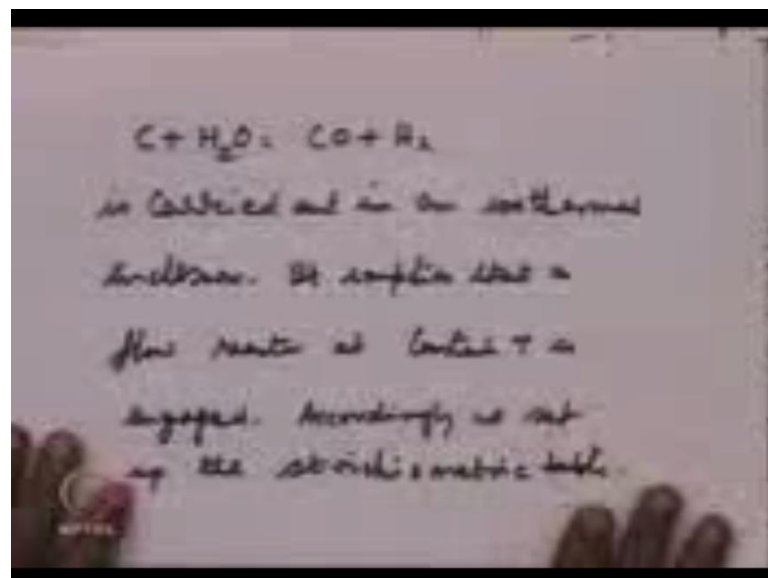 C + H₂O = CO + H₂
is Carried out in an isothermal
enclosure. It implies that a
flow reactor at Constant T is
engaged. Accordingly we set
up the stoichiometric table.
NPTEL